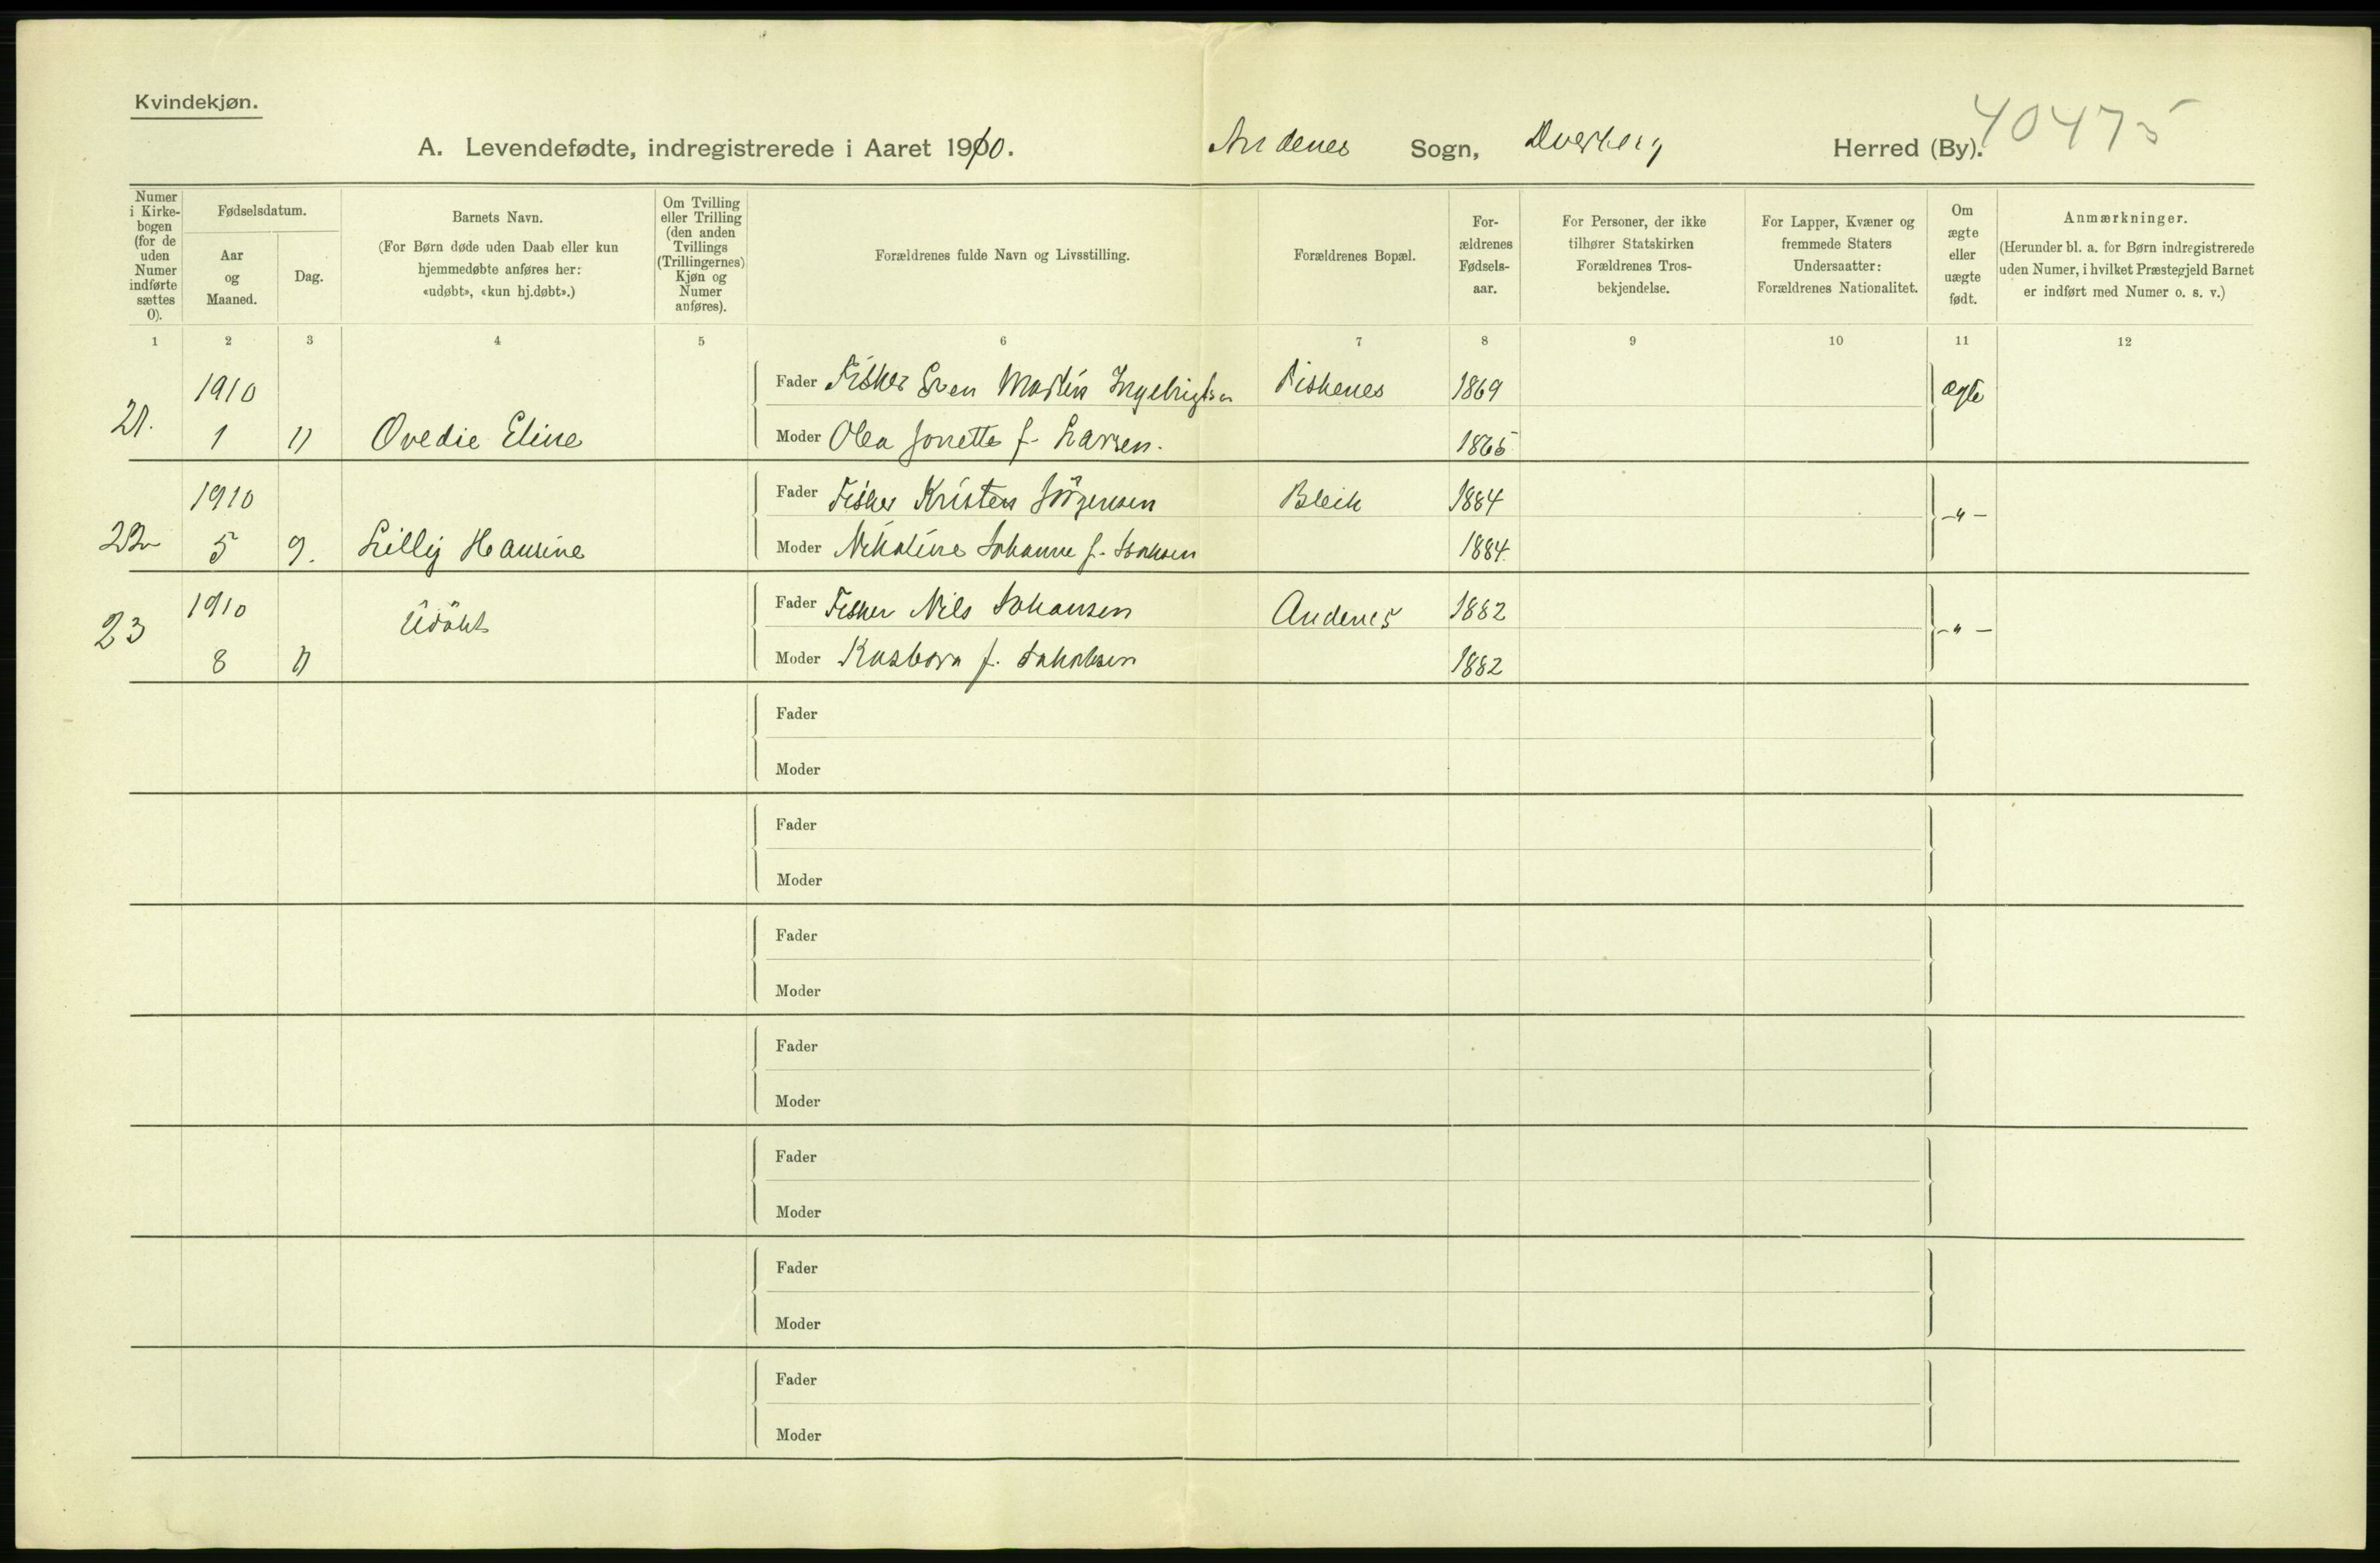 Kvindekjøn.
A. Levendefødte, indregistrerede i Aaret 1910. Andenes Sogn, Dverberg Herred (By). 40475
Numer i Kirkebogen (for de uden Numer indførte sættes 0).
Fødselsdatum.
Aar og Maaned.
Dag.
Barnets Navn.
(For Børn døde uden Daab eller kun hjemmedøbte anføres her: «udøbt», «kun hj.døbt».)
Om Tvilling eller Trilling (den anden Tvillings (Trillingernes) Kjøn og Numer anføres).
Forældrenes fulde Navn og Livsstilling.
Forældrenes Bopæl.
Forældrenes Fødselsaar.
For Personer, der ikke tilhører Statskirken Forældrenes Trosbekjendelse.
For Lapper, Kvæner og fremmede Staters Undersaatter: Forældrenes Nationalitet.
Om ægte eller uægte født.
Anmærkninger.
(Herunder bl. a. for Børn indregistrerede uden Numer, i hvilket Præstegjeld Barnet er indført med Numer o. s. v.)
1 2 3 4 5 6 7 8 9 10 11 12
1910 Fader Fisker Even Martin Ingebrigtsen Fiskenes 1869 ægte
21. 1 11 Ovedie Eline Moder Olea Jonette f. Larsen. 1865
1910 Fader Fisker Kristen Jörgensen Bleik 1884 -"-
22 5 9. Lilly Hansine Moder Nikoline Johanne f. 1884.
1910 Fader Fisker Nils Johansen Andenes 1882 -"-
23 Udöbt
8 11 Moder f. Jakobsen 1882
Fader
Moder
Fader
Moder
Fader
Moder
Fader
Moder
Fader
Moder
Fader
Moder
Fader
Moder